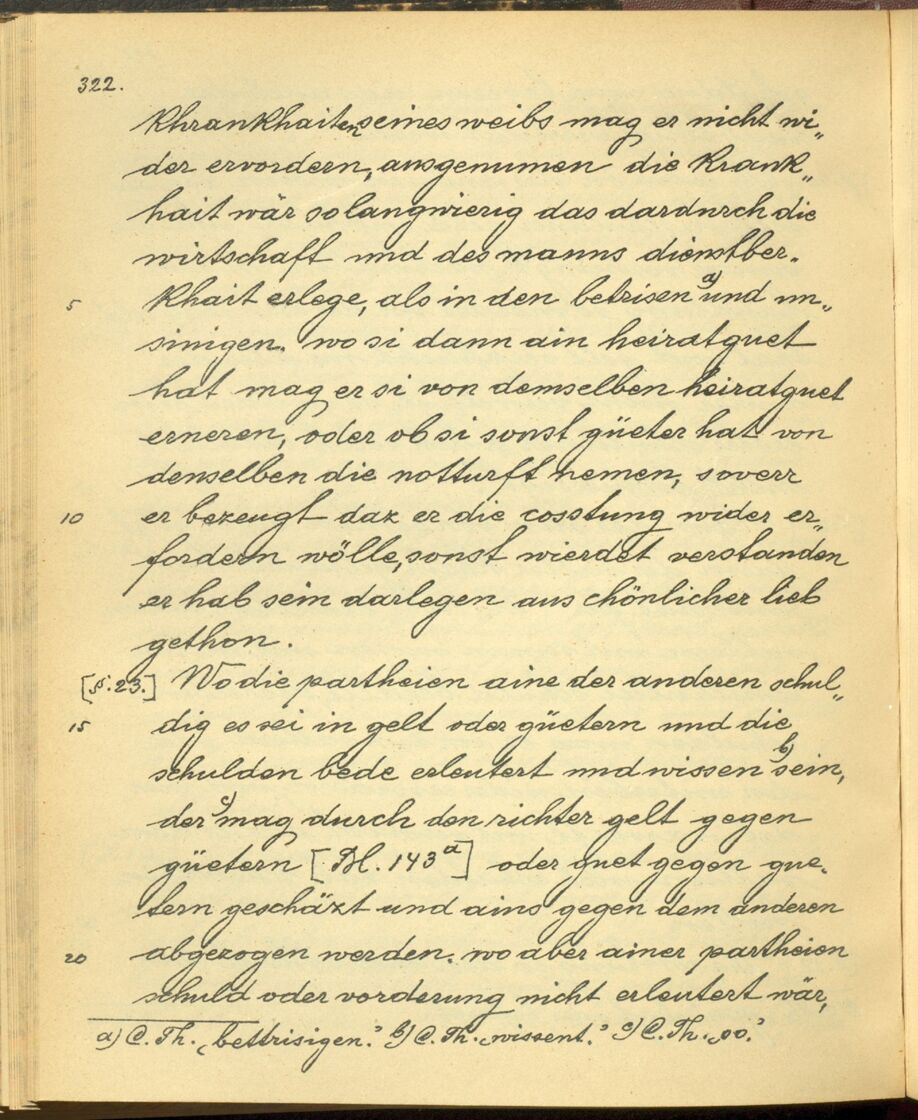 322.
Khrankhaiten seines weibs mag er nicht wi„
der ervordern, ausgenumen die Krank„
hait wär so langwierig das dardurch die
wirtschaft und des manns dienstber„
5 Khait erlege, als in den betrisen a) und un„
sinigen. wo si dann ain heiratguet
hat mag er si von demselben heiratguet
erneren, oder ob si sonst güeter hat von
denselben die notturft nemen, soverr
10 er bezeugt daz er die cosstung wider er„
fordern wölle, sonst wierdet verstanden
er hab sein darlegen aus chönlicher lieb
gethon.
[§. 23.] Wo die partheien aine der anderen schul„
15 dig es sei in gelt oder güetern und die
schulden bede erleutert und wissen b) sein,
der c) mag durch den richter gelt gegen
güetern [Bl. 143a] oder guet gegen gue„
tern geschäzt und ains gegen dem anderen
20 abgezogen werden. wo aber ainer partheien
schuld oder vorderung nicht erleutert wär,
a) C. Th. „bettrisigen.“ b) C. Th. „wissent.“ c) C. Th. „so.“